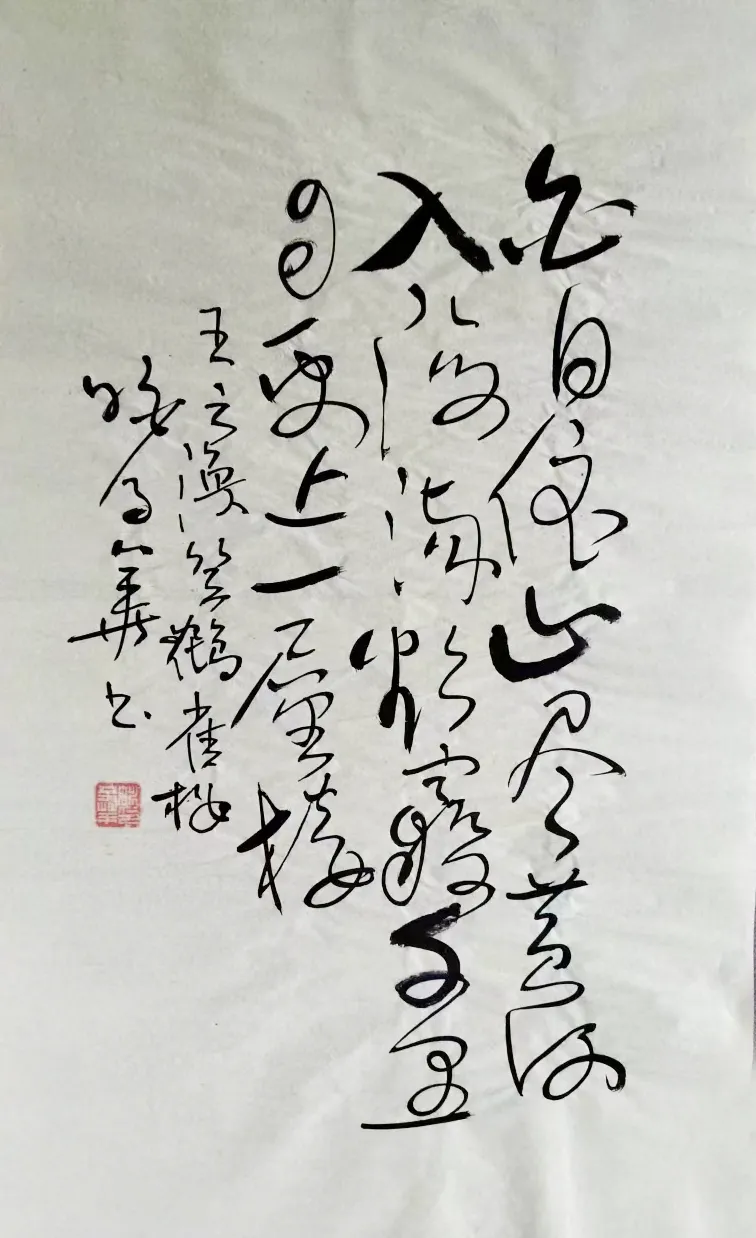 白日依山尽黄河
入海流欲窮千里
目更上一層楼
王之渙登鹳雀楼
華书